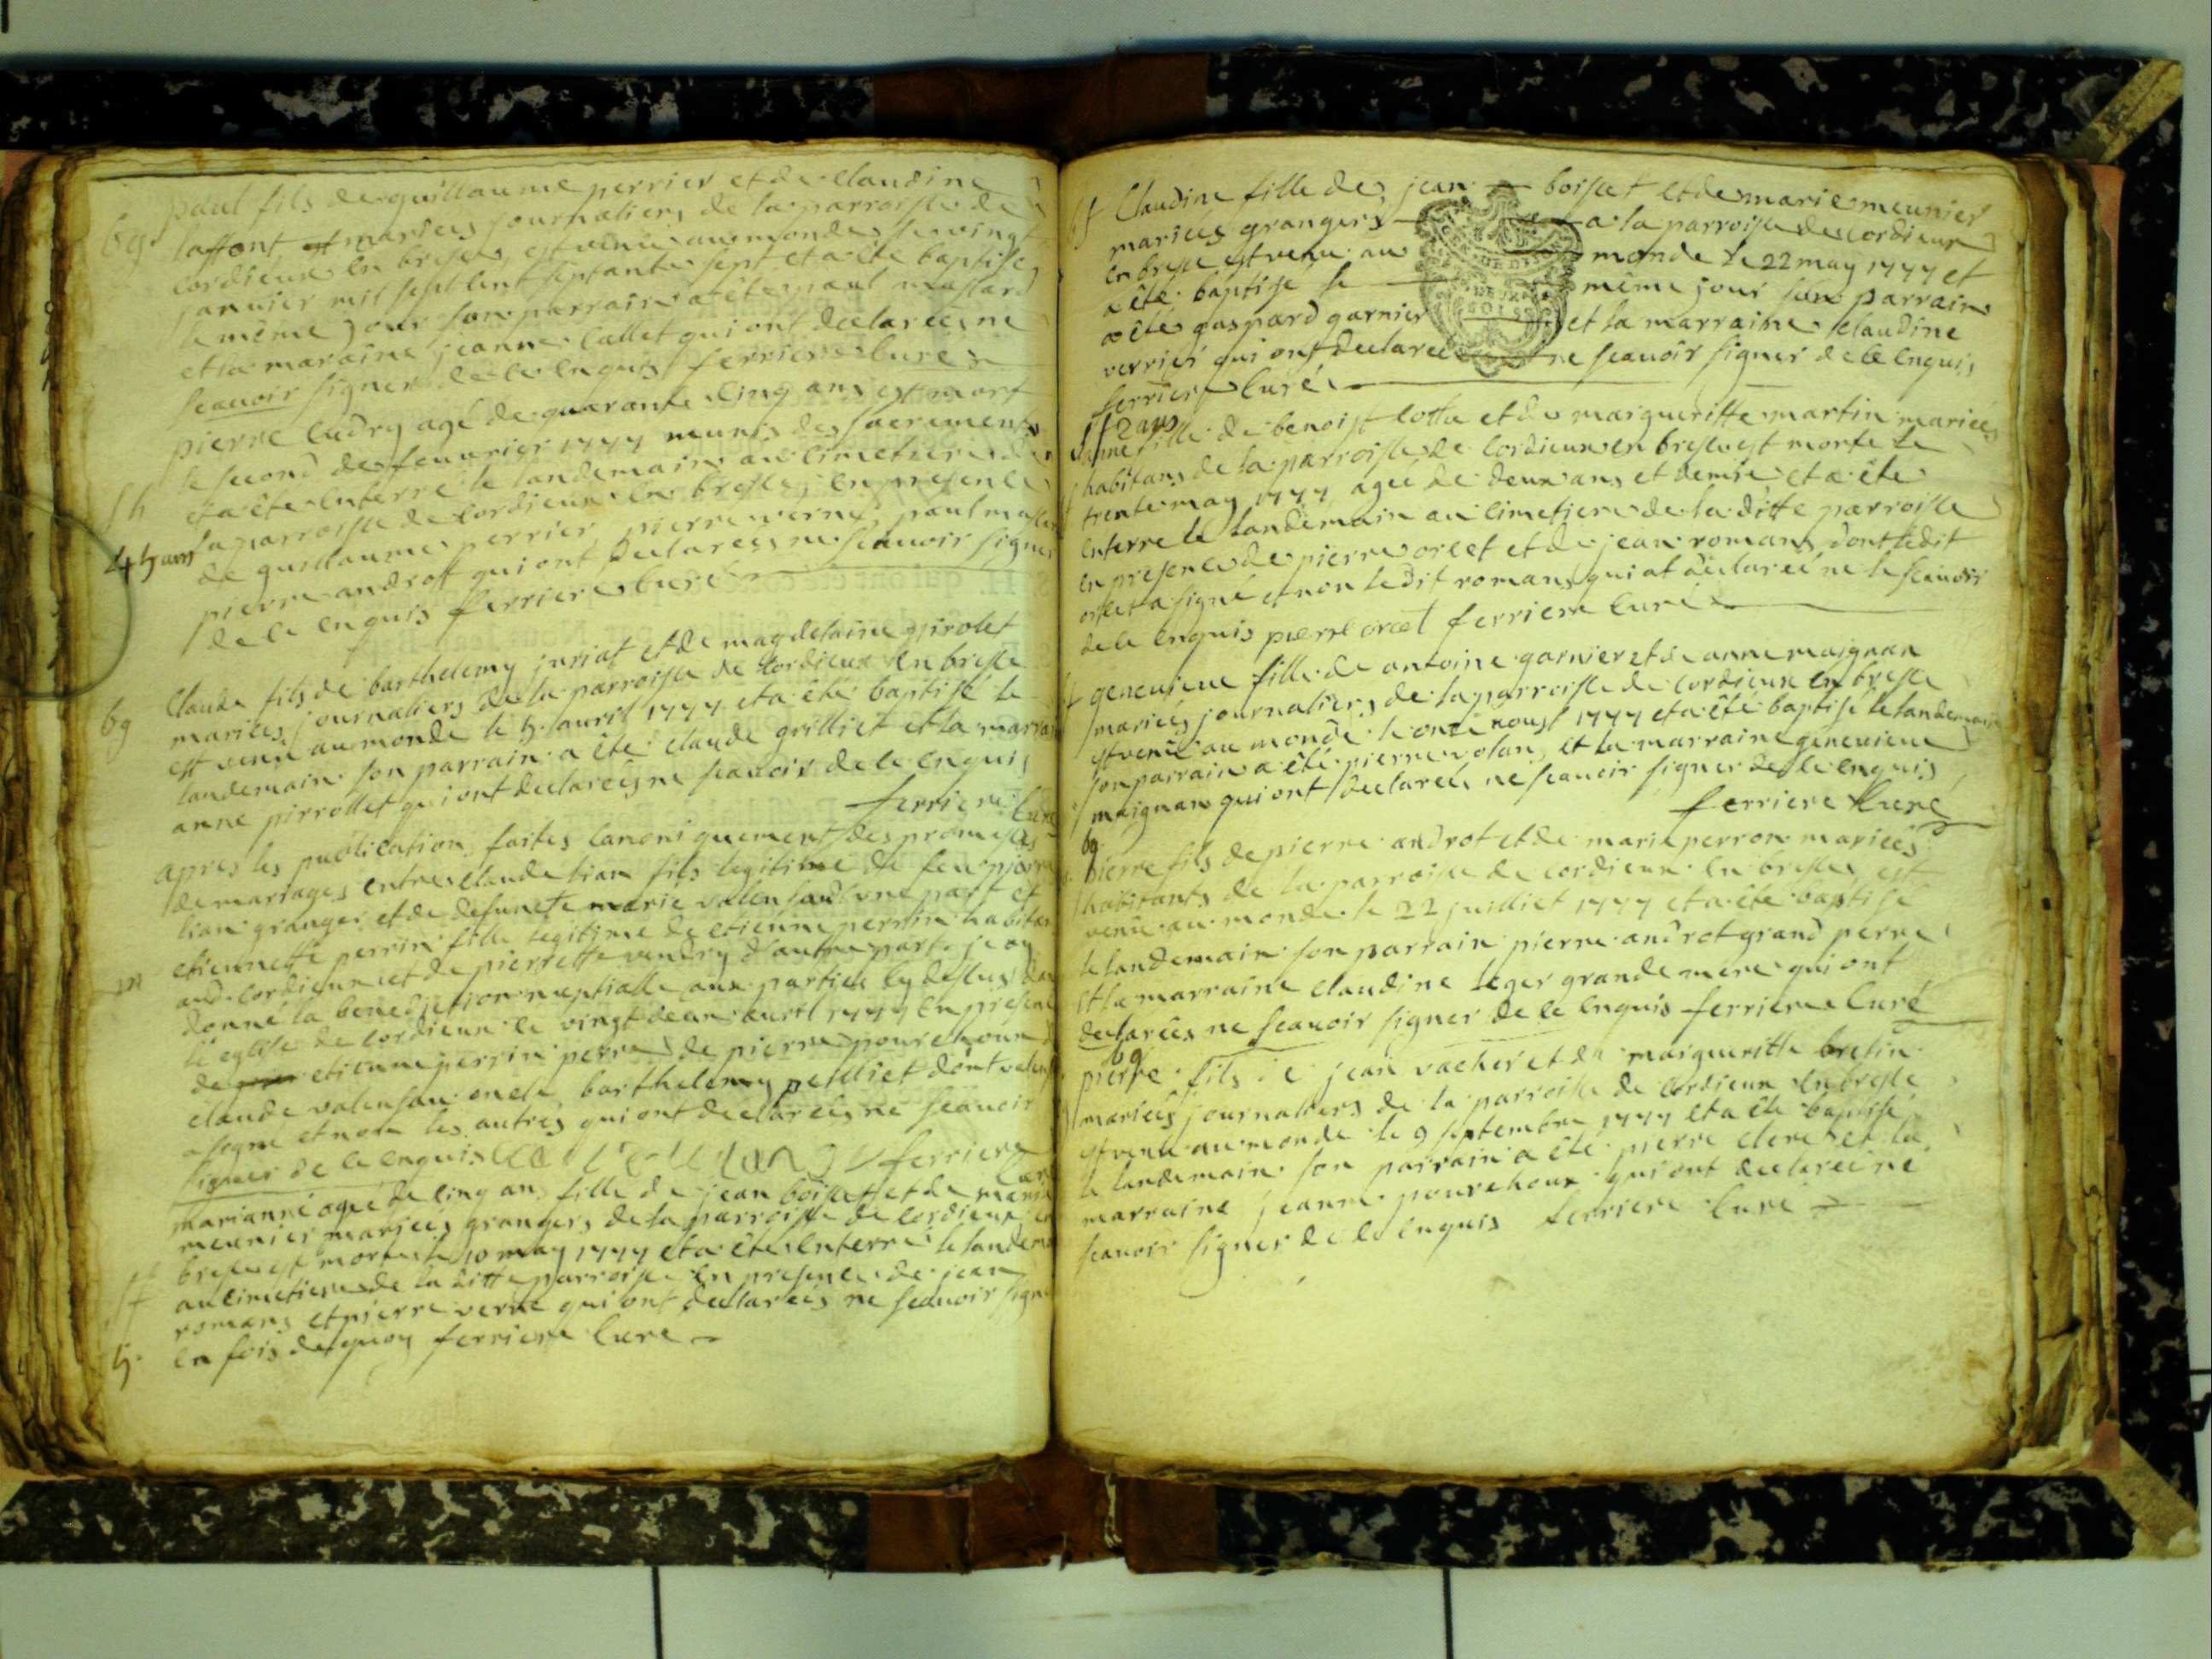 bg paul fils de guillaume perrier et de claudine
laffont et mariees journaliers de la parroisse de
cordieux en bresse, est venu au monde le vingt
janvier mil sept cent septante sept et a été baptisé
le même jour son parrain a été paul massard
et la maraine jeanne callet qui ont declareés ne
scauoir signer de ce enquis ferriere curé
pierre cudry agé de quarante cinq ans est mort
le second de feuurier 1777 munis des sacrements
sh et a été enterré le landemain au cimetiere de
la parroisse de cordieux en bresse, en presence
45 ans de guillaume perrier, pierre verne, paul
pierre androt qui ont declareés ne scauoir signer
de ce enquis ferriere curé
bg Claude fils de barthelemy juriat et de magdelaine pirolet
mariées journaliers de la parroisse de cordieux en bresse
est venu au monde le 5 auril 1777 et a été baptisé le
landemain son parrain a été claude grilliet et la
anne pirrollet qui ont declareés ne scauoir de ce enquis
ferriere curé
apres les publication faites canoniquement des promesses
de mariages entre claude lian fils legitime de feu pierre
lian granger et de defuncte marie valensaud une part et
etiennette perrin fille legitime de etienne perrin
m aud. cordieux et de pierrette vendry d'autre part je ay
donné la benediction nuptialle aux parties cy dessus
l'eglise de cordieux le vingt deux auril 1777 en
de etienne perrin perre de pierre pourchoux
claude valensau oncle, barthelemy petilliet dont
a signé et non les autres qui ont declareés ne scauoir
signer de ce enquis ferriere
curé
marianne ageé de cinq ans fille de jean boisset et de marie
meunier marieés grangers de la parroisse de cordieux en
bresse est morte le 10 may 1777 et a été enterré le
sf au cimetiere de la ditte parroisse en presence de jean
romans et pierre verne qui ont declareés ne scauoir
5. en fois de quoy ferriere curé
bf Claudine fille de jean boisset et de marie meunier
mariées grangers a la parroisse de cordieux
en bresse est venu au monde le 22 may 1777 et
a été baptisé le même jour son parrain
a été gaspard garnier et la marraine claudine
verrier qui ont declareé ne scauoir signer de ce enquis
ferriere curé
sf 2 ans
anne fille de benoist cotta et de maigueritte martin marieés
habitans de la parroisse de cordieux en bresse est morte le
trente may 1777 ageé de deux ans et demie et a été
enterré le landemain au cimetiere de la ditte parroisse
en presence de pierre orcet et de jean romans dont ledit
orcet a signé et non ledit romans qui at declareé ne le scauoir
de ce enquis pierre orcet ferriere curé
bf geneuieue fille de antoine garnier et de anne maignan
marieés journaliers de la parroisse de cordieux en bresse
est venue au monde le onze aoust 1777 et a été baptisé le landemain
son parrain a été pierre volan, et la marraine geneuieue
maignan qui ont declareés ne scauoir signer de ce enquis
ferriere curé
bg
pierre fils de pierre androt et de marie perron marieés
habitants de la parroisse de cordieux en bresse, est
venu au monde le 22 juilliet 1777 et a été baptisé
le landemain son parrain pierre androt grand perre
et la marraine claudine leger grande mere qui ont
declareés ne scauoir signer de ce enquis ferriere curé
bg
pierre fils de jean vacher et de maigueritte bretin
marieés journaliers de la parroisse de cordieux en bresse
est venu au monde le 9 septembre 1777 et a été baptisé
le landemain son parrain a été pierre clere et la
marraine jeanne pourchoux qui ont declareé ne
scauoir signer de ce enquis ferriere curé